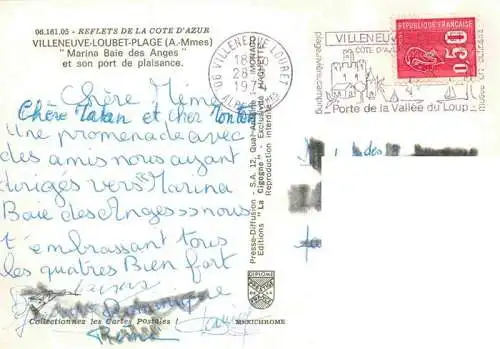 06.161.05 - REFLETS DE LA COTE D'AZUR
VILLENEUVE-LOUBET-PLAGE (A.-Mmes)
"Marina Baie des Anges"
et son port de plaisance.
Chère Mémé
Chère Tatan et cher Tonton
Une promenade avec
des amis nous ayant
dirigés vers Marina
Baie des Anges nous
t'embrassant tous
les quatres Bien fort
Collectionnez les Cartes Postales !
MEXICHROME
Presse-Diffusion - S.A. 12, Quai Antoine MONACO
Editions "La Cigogne" Exclusivité HACHETTE
Reproduction interdite
DIPLOME
PRESTIGE
06 VILLENEUVE LOUBET
18
28
197
ALPES
VILLENEUVE
COTE D'AZUR
Porte de la Vallée du Loup
REPUBLIQUE FRANÇAISE
0,50
des